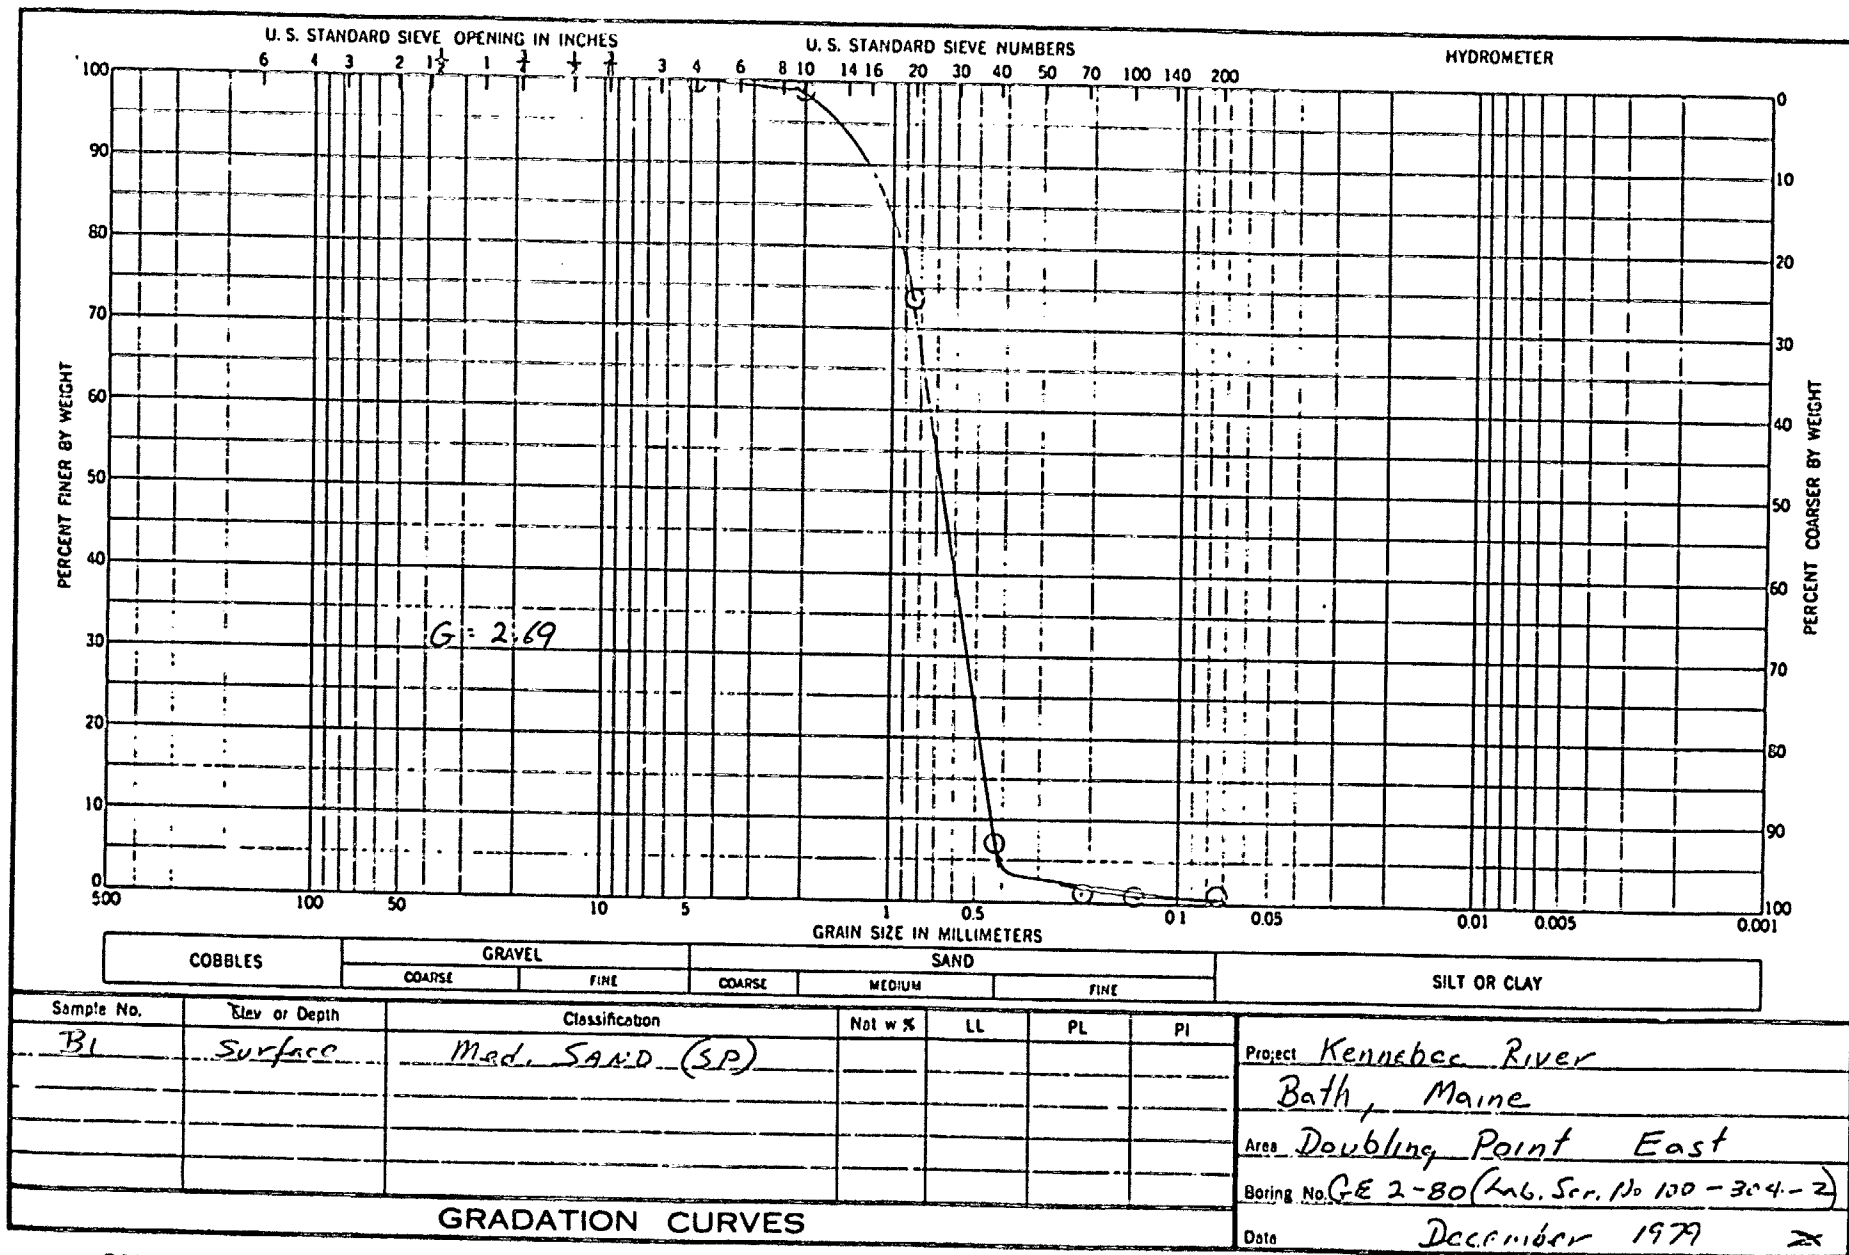 U. S. STANDARD SIEVE OPENING IN INCHES
U. S. STANDARD SIEVE NUMBERS
HYDROMETER
6 4 3 2 1½ 1 3 4 6 8 10 14 16 20 30 40 50 70 100 140 200
100
90
80
70
60
50
40
30
20
10
0
PERCENT FINER BY WEIGHT
G = 2.69
0
10
20
30
40
50
60
70
80
90
100
PERCENT COARSER BY WEIGHT
500 100 50 10 5 1 0.5 0.1 0.05 0.01 0.005 0.001
GRAIN SIZE IN MILLIMETERS
COBBLES GRAVEL SAND SILT OR CLAY
COARSE FINE COARSE MEDIUM FINE
Sample No. Elev or Depth Classification Nat w % LL PL PI
B1 Surface Med. SAND (SP)
Project Kennebec River
Bath, Maine
Area Doubling Point East
Boring No. GE 2-80 (Lab. Ser. No 100-304-2)
Date December 1979
GRADATION CURVES